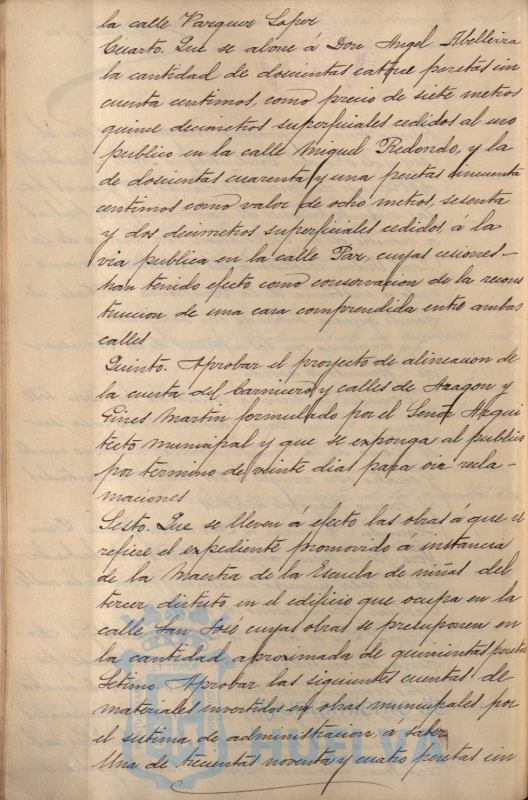 la calle Vazquez Lopez
Cuarto. Que se abone á Don Angel Abelleira
la cantidad de doscientas catorce pesetas cin
cuenta centimos, como precio de siete metros
quince decimetros superficiales cedidos al uso
publico en la calle Miguel Redondo, y la
de doscientas cuarenta y una pesetas cincuenta
centimos como valor de ocho metros, sesenta
y dos decimetros superficiales cedidos, á la
via publica en la calle Paz, cuyas cesiones-
han tenido efecto como de la recons
truccion de una casa comprendida entre ambas
calles
Quinto. Aprobar el proyecto de alineacion de
la cuesta del Carnicero y calles de Aragon y
Gines Martin formulado por el Señor Arqui
tecto municipal y que se exponga al publico
por termino de veinte dias para oir recla-
maciones
Sesto. Que se lleven á efecto las obras á que se
refiere el expediente promovido á instancia
de la Maestra de la Escuela de niñas del
tercer distrito en el edificio que ocupa en la
calle San José cuyas obras se presuponen en
la cantidad aproximada de quinientas pesetas
Setimo. Aprobar las siguientes cuentas de
materiales invertidos en obras municipales por
el sistema de administracion, á saber
Una de trecuentas noventa y cuatro pesetas cin
HUELVA